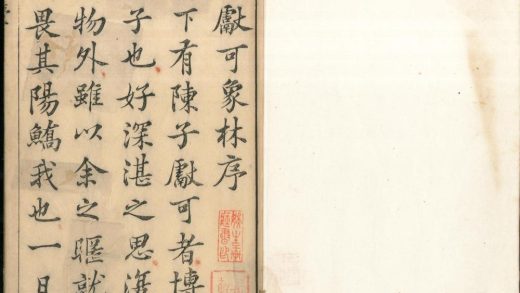 獻可象林序
下有陳子獻可者博
子也好深湛之思
物外雖以余之暱就
畏其陽鱎我也一